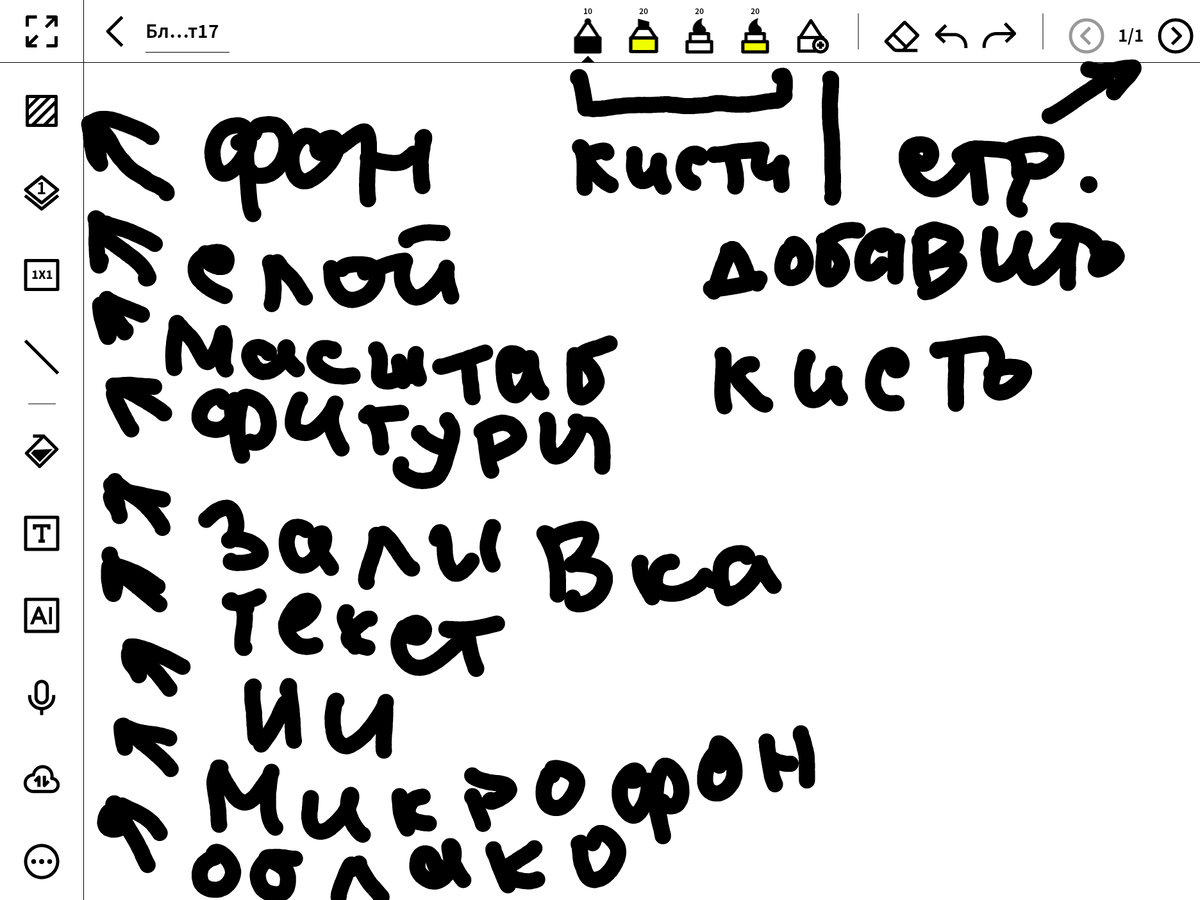 10 20 20 20
Бл...т17 1/1
кисти стр.
фон
1
слой добавить
1X1
масштаб кисть
фигури
заливка
T текст
AI
ИИ
Микрофон
облако